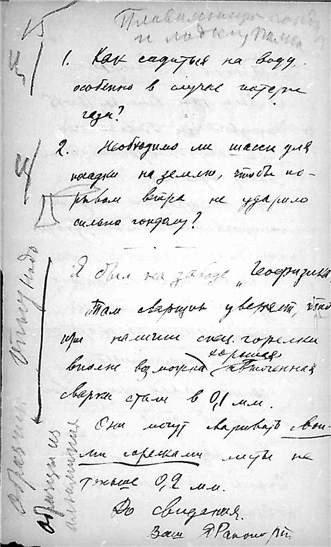 15
Плавающую гондолу
и
1. Как садиться на воду,
особенно в случае потери
газа?
2. Необходимо ли шасси для
посадки на землю, чтобы по-
рывом ветра не ударило
сильно гондолу?
Я был на заводе „Геофизика“
Там сварщик уверяет, что
при наличии спец. горелки
вполне возможна хорошая
сварка стали в 0,1 мм.
Они могут сваривать свои-
ми горелками листы не
тоньше 0,2 мм.
До свидания.
Ваш
надо
образцы из
алюминия